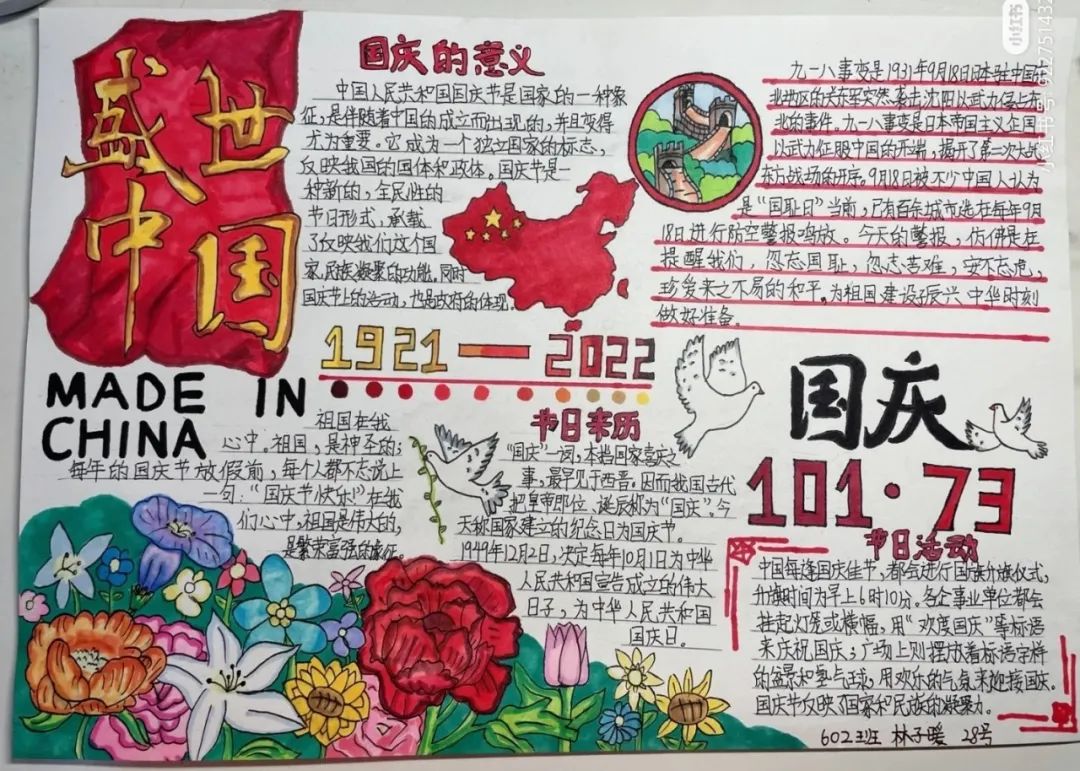 盛世
中国
MADE IN
CHINA
国庆的意义
中国人民共和国国庆节是国家的一种象
征,是伴随着中国的成立而出现的,并且变得
尤为重要。它成为一个独立国家的标志,
反映我国的国体和政体。国庆节是一
种新的,全民性的
节日形式,承载
了反映我们这个国
家,民族凝聚的功能,同时
国庆节上的活动,也是政府的体现。
九一八事变是1931年9月18日日本驻中国
北地区的关东军突然袭击沈阳以武力侵占东
北的事件。九一八事变是日本帝国主义企图
以武力征服中国的开端,揭开了第二次大战
东方战场的开序。9月18日被不少中国人认为
是“国耻日”当前,已有百余城市选在每年9月
18日进行防空警报鸣放。今天的警报,仿佛是在
提醒我们,忽忘国耻,忽忘苦难,安不忘虎,
珍爱来之不易的和平。为祖国建设振兴中华时刻
做好准备。
1921—2022
祖国在我
心中。祖国,是神圣的;
每年的国庆节放假前,每个人都不忘说上
一句:“国庆节快乐!”在我
们心中,祖国是伟大的,
是繁荣富强的象征。
节日来历
“国庆”一词,本指国家喜庆之
事,最早见于西晋。因而我国古代
把皇帝即位、诞辰称为“国庆”。今
天称国家建立的纪念日为国庆节。
1949年12月2日,决定每年10月1日为中华
人民共和国宣告成立的伟大
日子,为中华人民共和国
国庆日。
国庆
101·73
节日活动
中国每逢国庆佳节,都会进行国旗升旗仪式,
升旗时间为早上6时10分。各企事业单位都会
挂起灯笼或横幅,用“欢度国庆”等标语
来庆祝国庆;广场上则摆放着标语字样
的盆景和空气球,用欢乐的气氛来迎接国庆。
国庆节反映了国家和民族的凝聚力。
602班 林子暖 28号
小红书